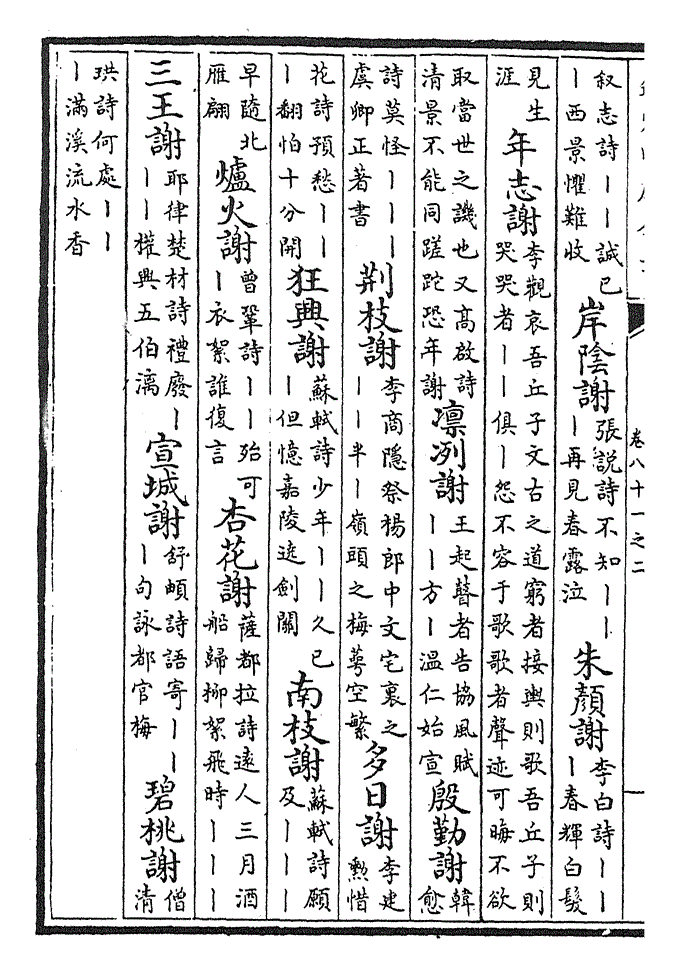 卷八十一之二
一
叙志詩丨丨誠已
丨西景懼難收
岸陰謝
張說詩不知丨丨
丨再見春露泣
朱顏謝
李白詩丨丨
丨春輝白髮
見生
涯
年志謝
李觀哀吾丘子文古之道窮者接輿則歌吾丘子則
哭哭者丨丨俱丨怨不容于歌歌者聲迹可晦不欲
取當世之譏也又高啟詩
清景不能同蹉跎恐年謝
凛冽謝
王起聾者告協風賦
丨丨方丨溫仁始宣
殷勤謝
韓
愈
詩莫怪丨丨丨
虞卿正著書
荆枝謝
李商隱祭楊郎中文宅裏之
丨丨半丨嶺頭之梅萼空繁
多日謝
李建
勲惜
花詩預愁丨丨
丨翻怕十分開
狂興謝
蘇軾詩少年丨丨久已
丨但憶嘉陵遶劍關
南枝謝
蘇軾詩願
及丨丨丨
早隨北
雁翩
爐火謝
曾鞏詩丨丨殆可
丨衣絮誰復言
杏花謝
薩都拉詩遠人三月酒
船歸柳絮飛時丨丨丨
三王謝
耶律楚材詩禮廢丨
丨丨權輿五伯漓
宣城謝
舒頔詩語寄丨丨
丨句詠都官梅
碧桃謝
僧
清
珙詩何處丨丨
丨滿溪流水香